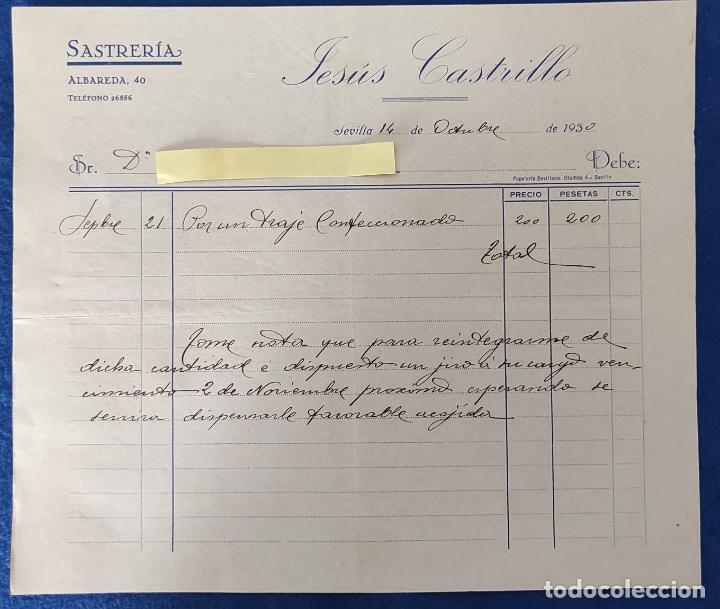 SASTRERÍA
ALBAREDA, 40
TELÉFONO 26856
Jesús Castrillo
Sevilla 14 de Octubre de 1930
Sr. D.n Debe:
Papelería Sevillana, Otumba 4.- Sevilla
PRECIO PESETAS CTS.
Sepbre 21 Por un traje Confeccionado 200 200
Total
Tome nota que para reintegrarme de
dicha cantidad é dispuesto un jiro á su cargo ven-
cimiento 2 de Noviembre proximo esperando se
servira dispensarle favorable acojida
todocoleccion.net